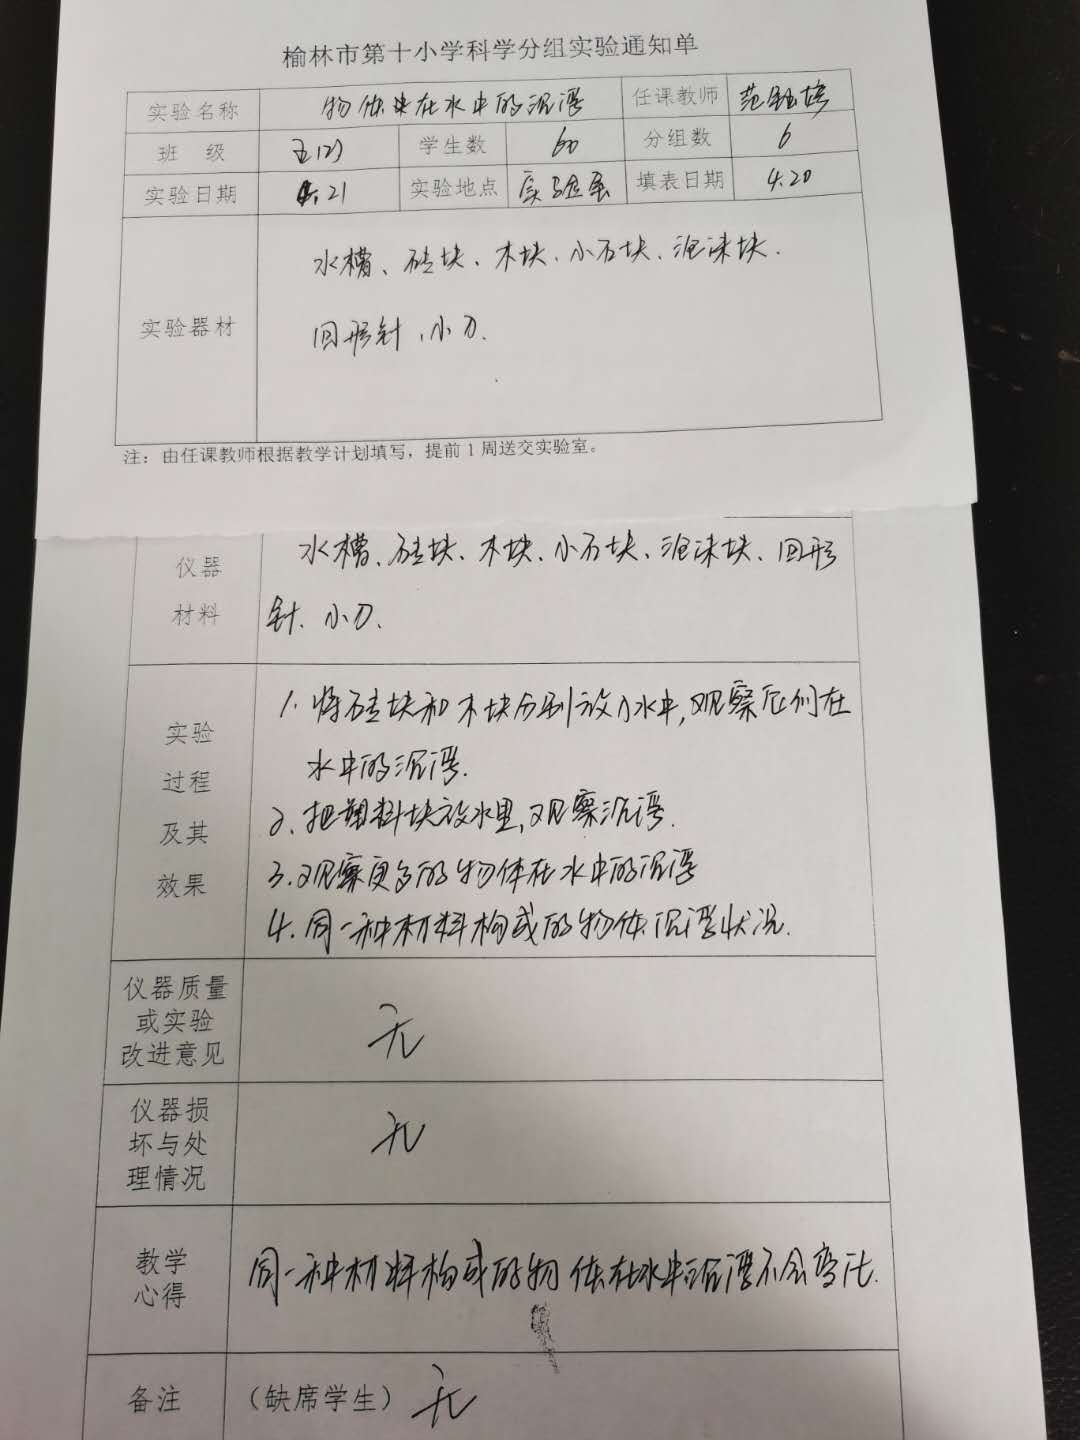 榆林市第十小学科学分组实验通知单
实验名称 物体在水中的沉浮 任课教师
班 级 五(2) 学生数 60 分组数 6
实验日期 4.21 实验地点 实验室 填表日期 4.20
水槽、砖块、木块、小石块、泡沫块.
实验器材
回形针、小刀.
注：由任课教师根据教学计划填写，提前1周送交实验室。
水槽、砖块、木块、小石块、泡沫块、回形
仪器
材料 针、小刀.
1. 将砖块和木块分别放入水中,观察它们在
实验
水中的沉浮.
过程
2、把塑料块放水里,观察沉浮.
及其
3.观察更多的物体在水中的沉浮
效果
4.同一种材料构成的物体沉浮状况.
仪器质量
或实验 无
改进意见
仪器损
坏与处 无
理情况
教学 同一种材料构成的物体在水中沉浮不会变化.
心得
备注 （缺席学生） 无